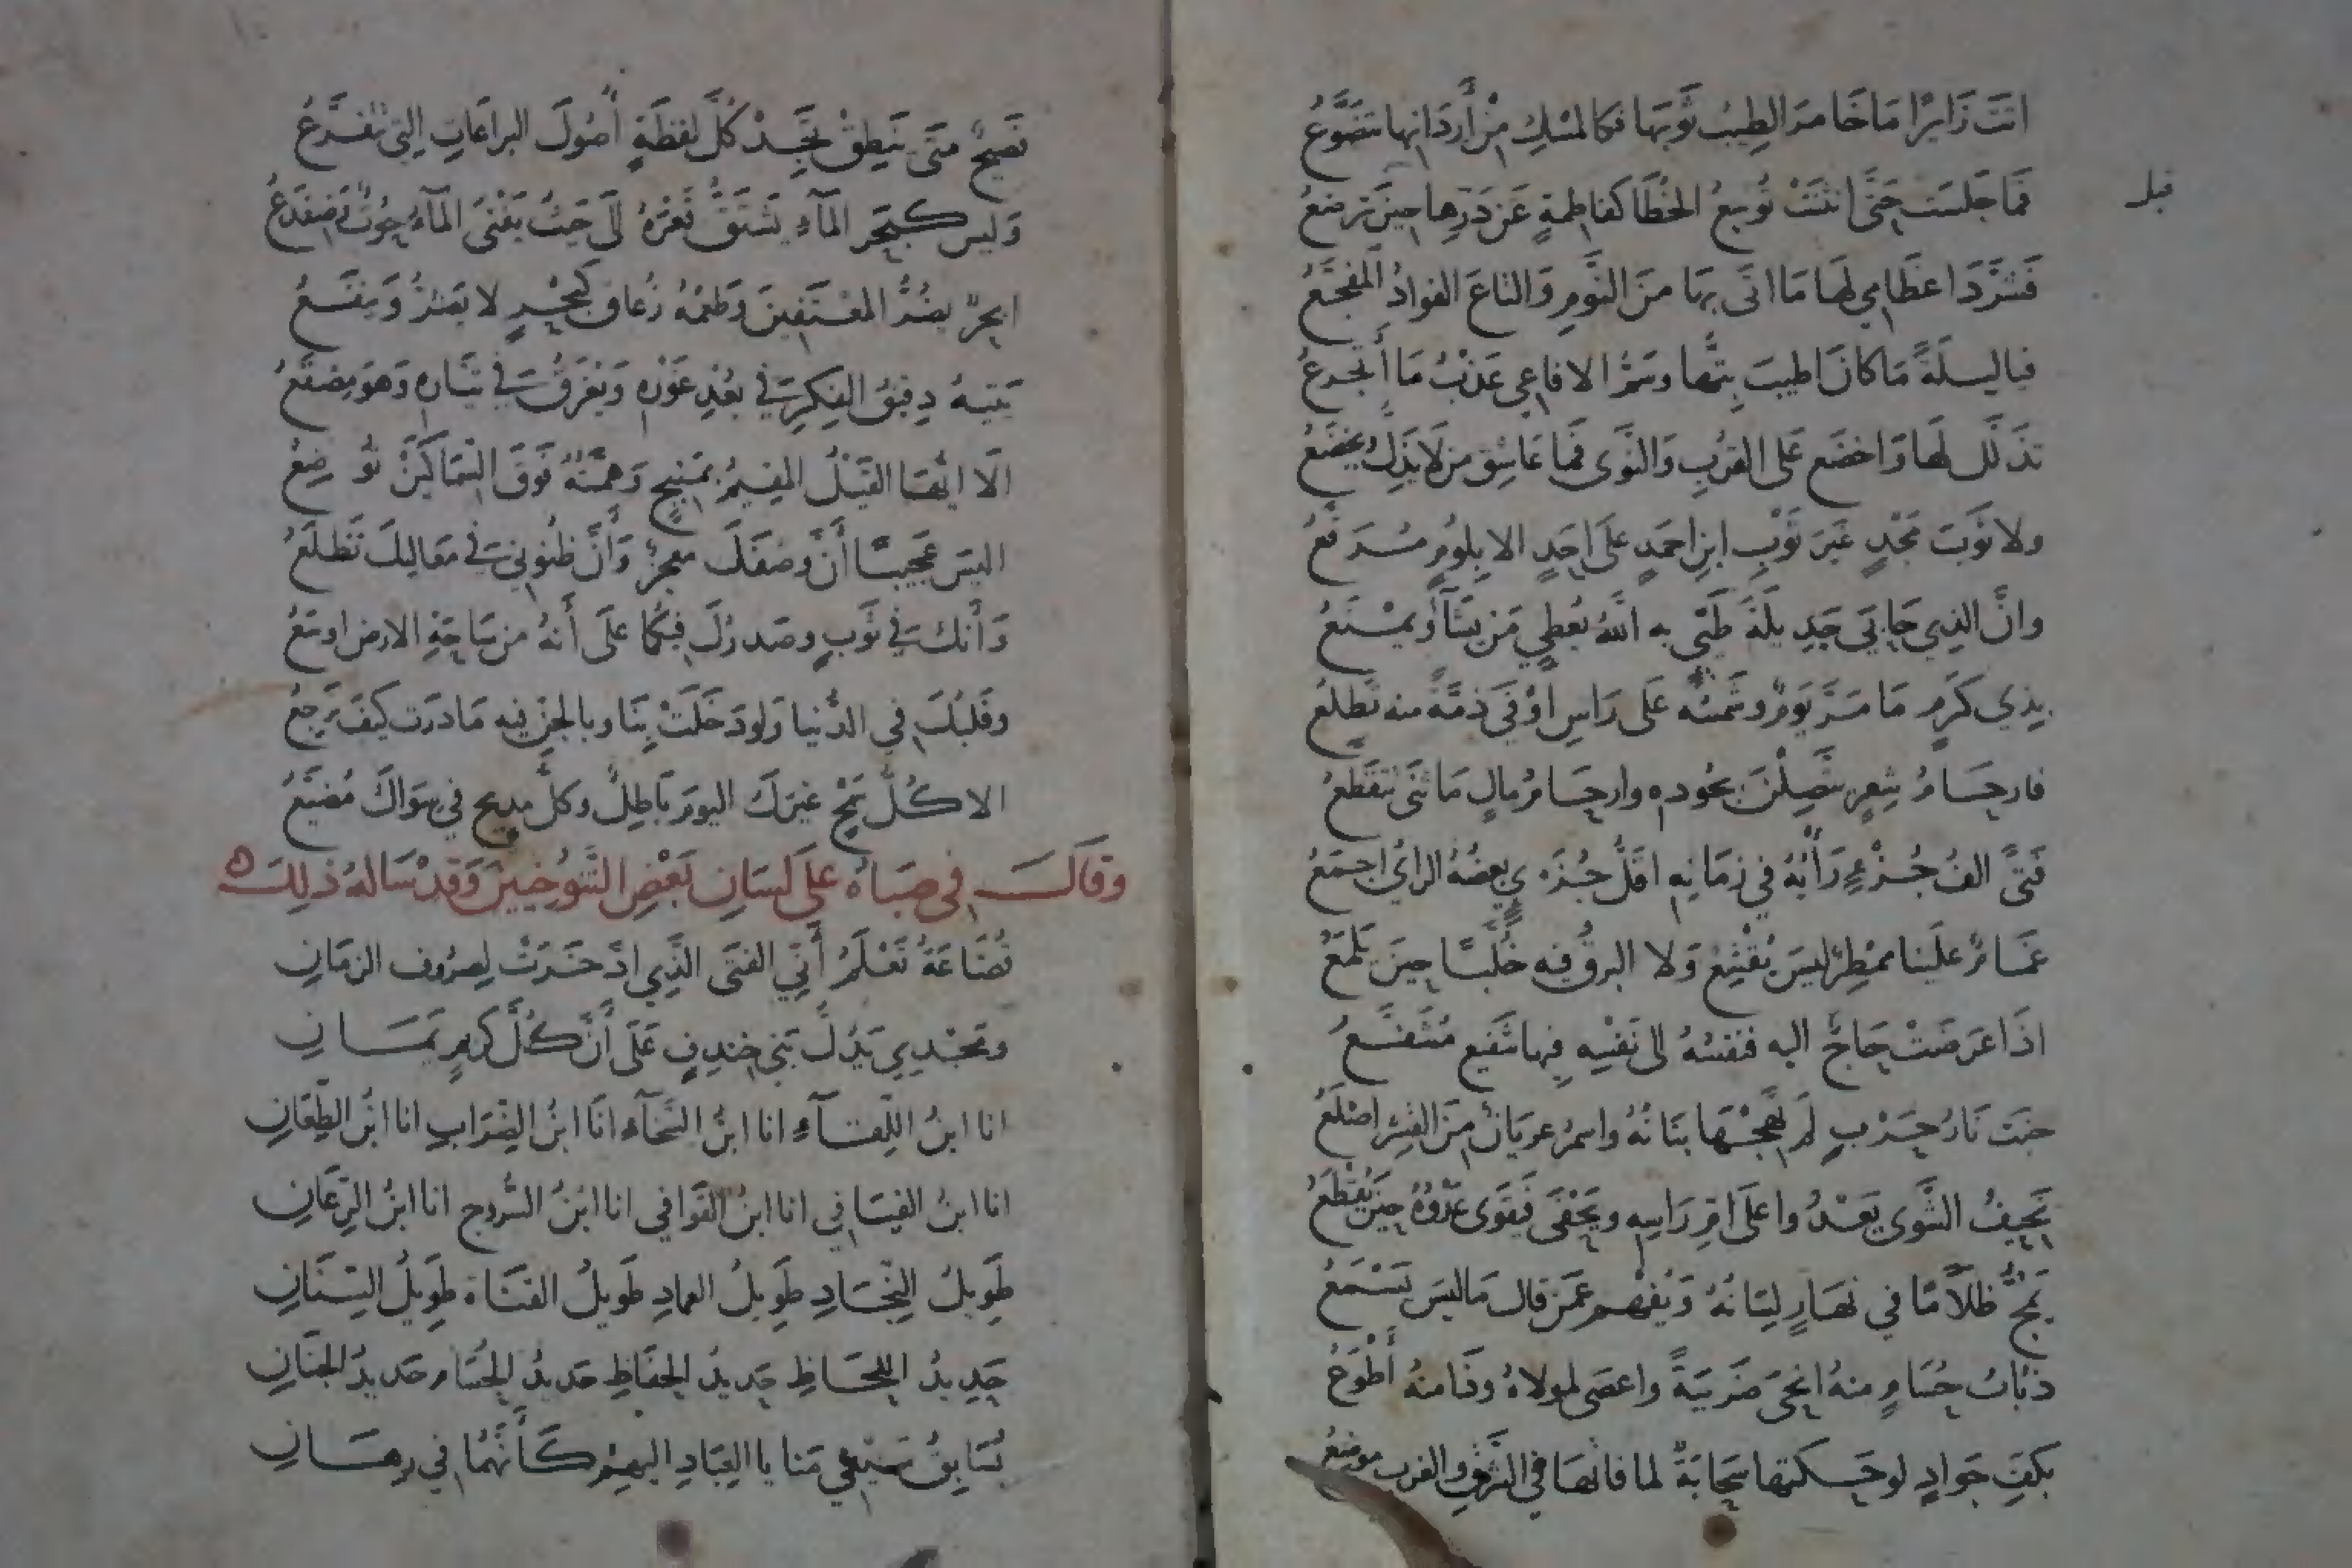 اتت زَايرًا مَا خَامَرَ الطِيبُ ثَوبَهَا فكالمسْكِ مِنْ أردَانِها يتضَوَّعُ
قبل
فَمَا جَلسَت حَتَّى انثنَتْ تُوسِعُ الخُطَا كفاطِمةٍ عَن دَرِّها حِينَ تُرضعُ
فَشَرَّدَ اعظَامِي لهَا مَا اتَى بِهَا مِنَ النَّومِ وَالتَاعَ الفوادُ المُفجَّعُ
فياليلَةً مَا كانَ اطيبَ بِتُّها وسَمُّ الافاعِي عَذْبُ مَا أتجَرعُ
تذَلَّل لهَا وَاخضَع عَلى القربِ وَالنَّوَى فمَا عَاشِق من لَا يَذِلُّ وَيخضَعُ
ولا ثَوبَ مَجْدٍ غَيرَ ثَوْبِ ابنِ احمَدٍ عَلَى احَدٍ الا بِلُومٍ مُرَقَّعُ
وانَّ الذِي حَابَى جَدِيلَةَ طَيِّى به اللهُ يُعطِي مَن يَشَآ وَيمْنَعُ
بِذِي كَرَمٍ مَا مَرَّ يَومٌ وشَمسُه عَلَى رَاسِ اوْفَى ذمَّةً منه تَطلعُ
فارحَامُ شِعرٍ يتَّصِلْنَ بجُوده وارحَامُ مالٍ مَا تَنَى تتقَطَّعُ
فَتىً الفُ جُزْءٍ رَأيُهُ في زمَانِهِ اقَلُّ جُزَىءٍ بعضُهُ الرايُ اجمَعُ
غمَامٌ علَينا ممْطِرٌ ليسَ يُقْشِعُ وَلا البرقُ فيه خُلَّبًا حِينَ يَلمَعُ
اذَا عَرَضَتْ حَاجٌ اليه فنفسُهُ الى نَفْسِهِ فِيها شَفِيع مُشَفَّعُ
خبَت نَارُ حَرْبٍ لَم تَهجْهَا بنَانُهُ واسمرُ عريَانٌ مِنَ القِشر اصْلَعُ
نَحِيفُ الشَّوى يَعْدُوا علَى امِّ رَاسِهِ ويَحْفَى فَيَقوَى عَدْوُهُ حِينَ يُقْطَعُ
يَمُجُّ ظَلَامًا في نَهَارٍ لِسَانُهُ وَيُفهِم عَمَّن قالَ مَا ليسَ يَسْمَعُ
ذُبَابُ حُسَامٍ منهُ انجَى ضَرِيبَةً واعصَى لمولاهُ وذَا منهُ أطْوَعُ
بكفِّ جَوادٍ لو حَكتها سَحَابَةٌ لما فاتهَا في الشَّرقِ والغرب موضِعُ
فَصيحٌ متَى يَنطِقْ تَجِدْ كُلَّ لفظَةٍ أصُولَ البراعَاتِ التِي تتفَرَّعُ
وَليس كبَحرِ المآءِ يَشتَقُّ قَعْرَهُ الَى حَيثُ يَفْنَى المآءُ حُوتٌ وَضِفدَعُ
ابحرٌ يضُرُّ المُعْتَفِينَ وَطعْمُهُ زُعَاق كَبحْرٍ لا يَضرُّ وَينفَعُ
يَتيهُ دقِيقُ الفِكرِ فِي بُعْدِ غَوْرِهِ وَيَغرَقُ فِي تيَّارِهِ وَهوَ مِصْقَعُ
الَا ايُّهَا القَيْلُ المُقِيمُ بمَنبِجٍ وَهِمَّتُهُ فَوقَ السِّمَاكَيْنِ تُوضِعُ
اليسَ عَجيبًا أنَّ وَصْفَكَ معجِزٌ وَأنَّ ظنُونِي فِي مَعَالِيكَ تَظلَعُ
وَأنكَ فِي ثَوبٍ وصَدرُكَ فيكُمَا علَى أنهُ من سَاحَةِ الارض اوسَعُ
وقَلبُكَ في الدُّنيا وَلو دَخَلَتْ بِنَا وبالجنِّ فيه مَا درَت كيفَ تَرجِعُ
الا كُلُّ سَمْحٍ غيرَكَ اليومَ بَاطِلٌ وكلُّ مديحٍ في سِوَاكَ مُضَيَّعُ
وقالَ في صِبَاهُ علَى لسَانِ بَعْضِ التَّنُوخيينَ وَقدْ سَالهُ ذلِكَ ه
قُضَاعَةُ تَعْلَمُ أنِّي الفتَى الذِي ادَّخَرَتْ لِصرُوف الزمَانِ
ومَجْدِي يَدُلُّ بَنِي خِندِفٍ عَلَى أنَّ كُلَّ كرِيمٍ يَمَانِ
انا ابنُ اللِّقَآءِ انا ابنُ السَّخَآءِ انَا ابنُ الضِّرَابِ انا ابنُ الطِّعَانِ
انا ابنُ الفيَافي انا ابنُ القوَافي انا ابنُ السُّروج انا ابنُ الرِّعَانِ
طَوِيلُ النِّجَادِ طَوِيلُ العمادِ طَوِيلُ القنَاة طَوِيلُ السِّنَانِ
حَدِيدُ اللِّحَاظِ حَدِيدُ الحِفَاظِ حَدِيدُ الحُسَام حَدِيدُ الجنَانِ
يُسَابِقُ سَيْفِي مَنايا العِبَادِ اليهِمْ كَأنَّهُمَا في رِهَانِ